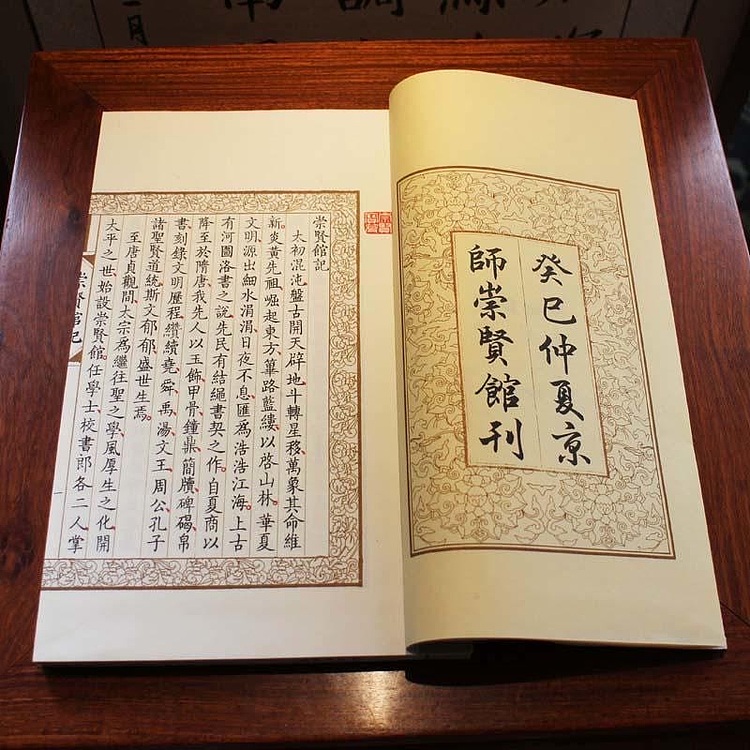 癸巳仲夏京
師崇賢館刊
崇賢館記
太初混沌、盤古開天辟地、斗轉星移、萬象其命維
新。炎黃先祖、崛起東方、篳路藍縷、以啓山林。華夏
文明、源出細水涓涓、日夜不息、匯爲浩浩江海。上古
有河圖洛書之說、先民有結繩書契之作。自夏商以
降、至於隋唐、我先人以玉飾、甲骨、鐘鼎、簡牘、碑碣、帛
書、刻錄文明歷程、纘續堯、舜、禹、湯、文王、周公、孔子
諸聖賢道統、斯文郁郁、盛世生焉。
至唐貞觀間、太宗爲繼往聖之學、風厚生之化、開
太平之世、始設崇賢館。任學士、校書郎各二人、掌
崇賢館記
一